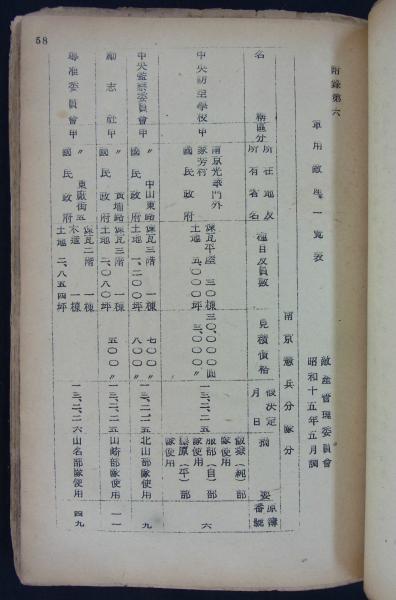 58
附錄第六
軍用敵產一覽表
敵產管理委員會
昭和十五年五月調
南京憲兵分隊分
名稱
區分
所在地及所有者名
種目及員數
見積價格
假決定月日
摘要
原簿番號
中央防空學校
甲
南京光華門外
國民政府
煉瓦平屋 三〇棟
土地 五、〇〇〇坪
三〇、〇〇〇圓
三、〇〇〇〃
一三、二、二五
服部(自)部隊使用
部隊使用
六
中央監察委員會
甲
〃 中山東路
國民政府
煉瓦三階 一棟
土地 一、二〇〇坪
七〇〇〃
八〇〇〃
一三、二、二五
北山部隊使用
九
勵志社
甲
〃 黃埔路
國民政府
煉瓦三階 一棟
土地 二、〇八〇坪
五〇〇〃
一三、二、二五
山崎部隊使用
一一
甲
〃
國民政府
煉瓦二階 一棟
木造 一棟
土地 二、八五四坪
一三、二、二六
山名部隊使用
四九